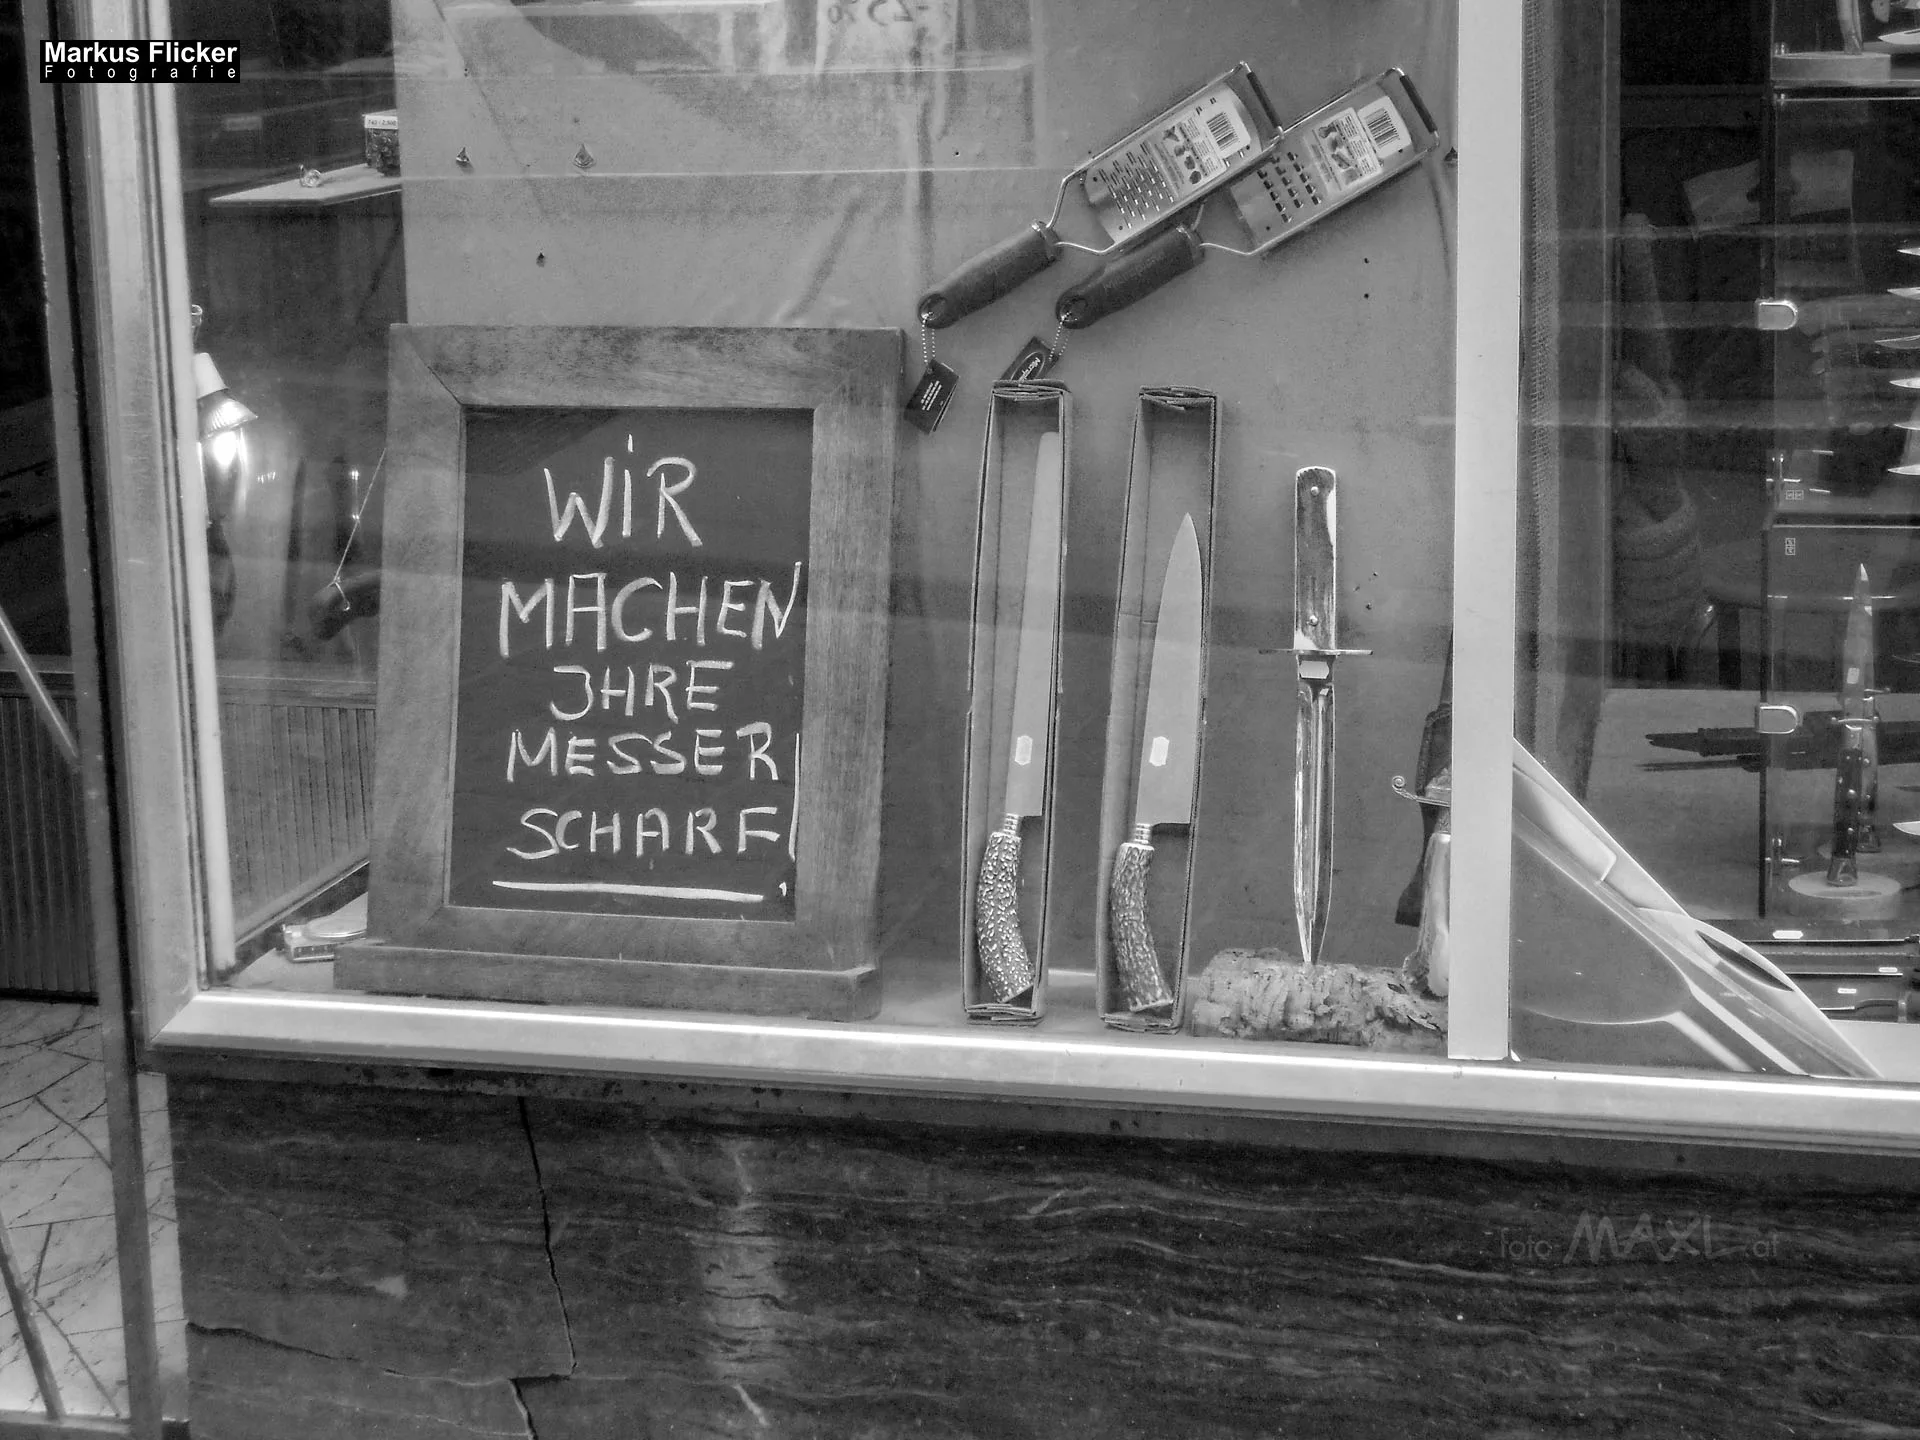 Markus Flicker
Fotografie
WiR
MACHEN
JHRE
MESSER
SCHARF!
foto MAXL.at